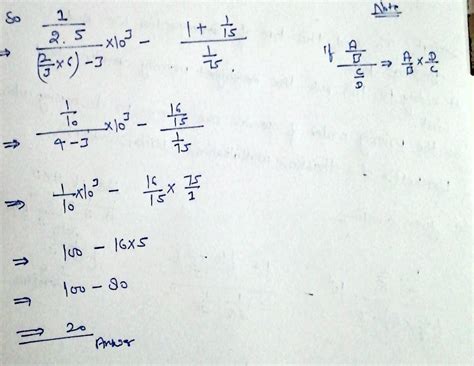 So
⇒ (1/2.5)/((2/3×6)-3) ×10³ - (1+1/15)/(1/75)
Note
If (A/B)/(C/D) ⇒ A/B × D/C
⇒ (1/10)/(4-3) ×10³ - (16/15)/(1/75)
⇒ 1/10 ×10³ - 16/15 × 75/1
⇒ 100 - 16×5
⇒ 100 - 80
⇒ 20 Answer